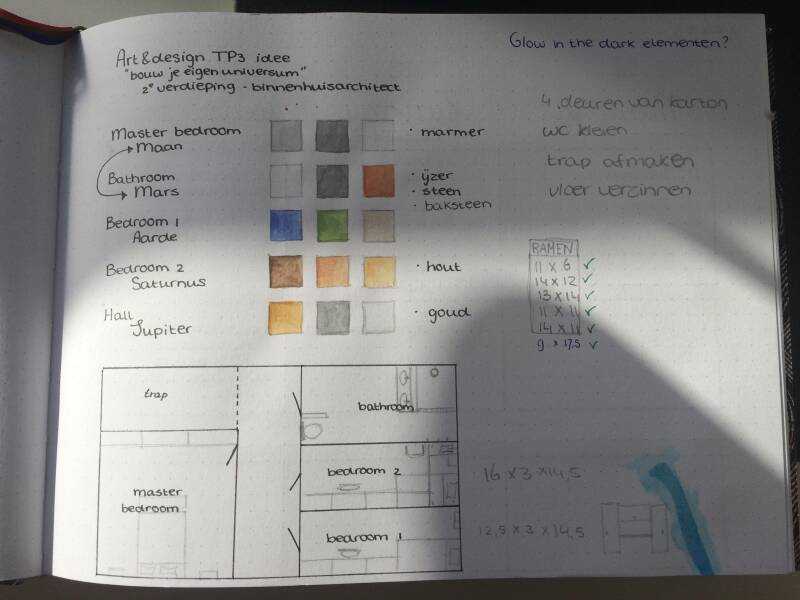 Art&design TP3 idee
"bouw je eigen universum"
2e verdieping - binnenhuisarchitect
Glow in the dark elementen?
4 deuren van karton
wc kleien
trap afmaken
vloer verzinnen
Master bedroom
Maan
· marmer
Bathroom
Mars
· ijzer
· steen
· baksteen
Bedroom 1
Aarde
Bedroom 2
Saturnus
· hout
Hall
Jupiter
· goud
RAMEN
11 x 6 ✓
14 x 12 ✓
13 x 14 ✓
11 x 11 ✓
14 x 11 ✓
9 x 17,5 ✓
trap
bathroom
master
bedroom
bedroom 2
bedroom 1
16 x 3 x 14,5
12,5 x 3 x 14,5